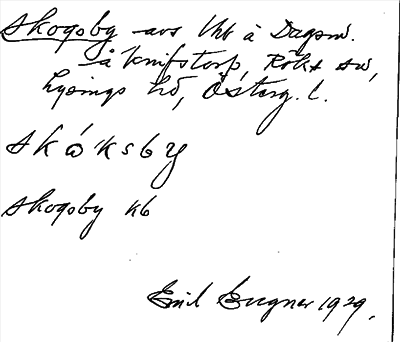 Skogsby - avs Utb å Dagsm.
å Knifstorp, Röks sn,
Lysings hd, Österg. l.
skå'ksby
Skogsby kb
Emil 1929.